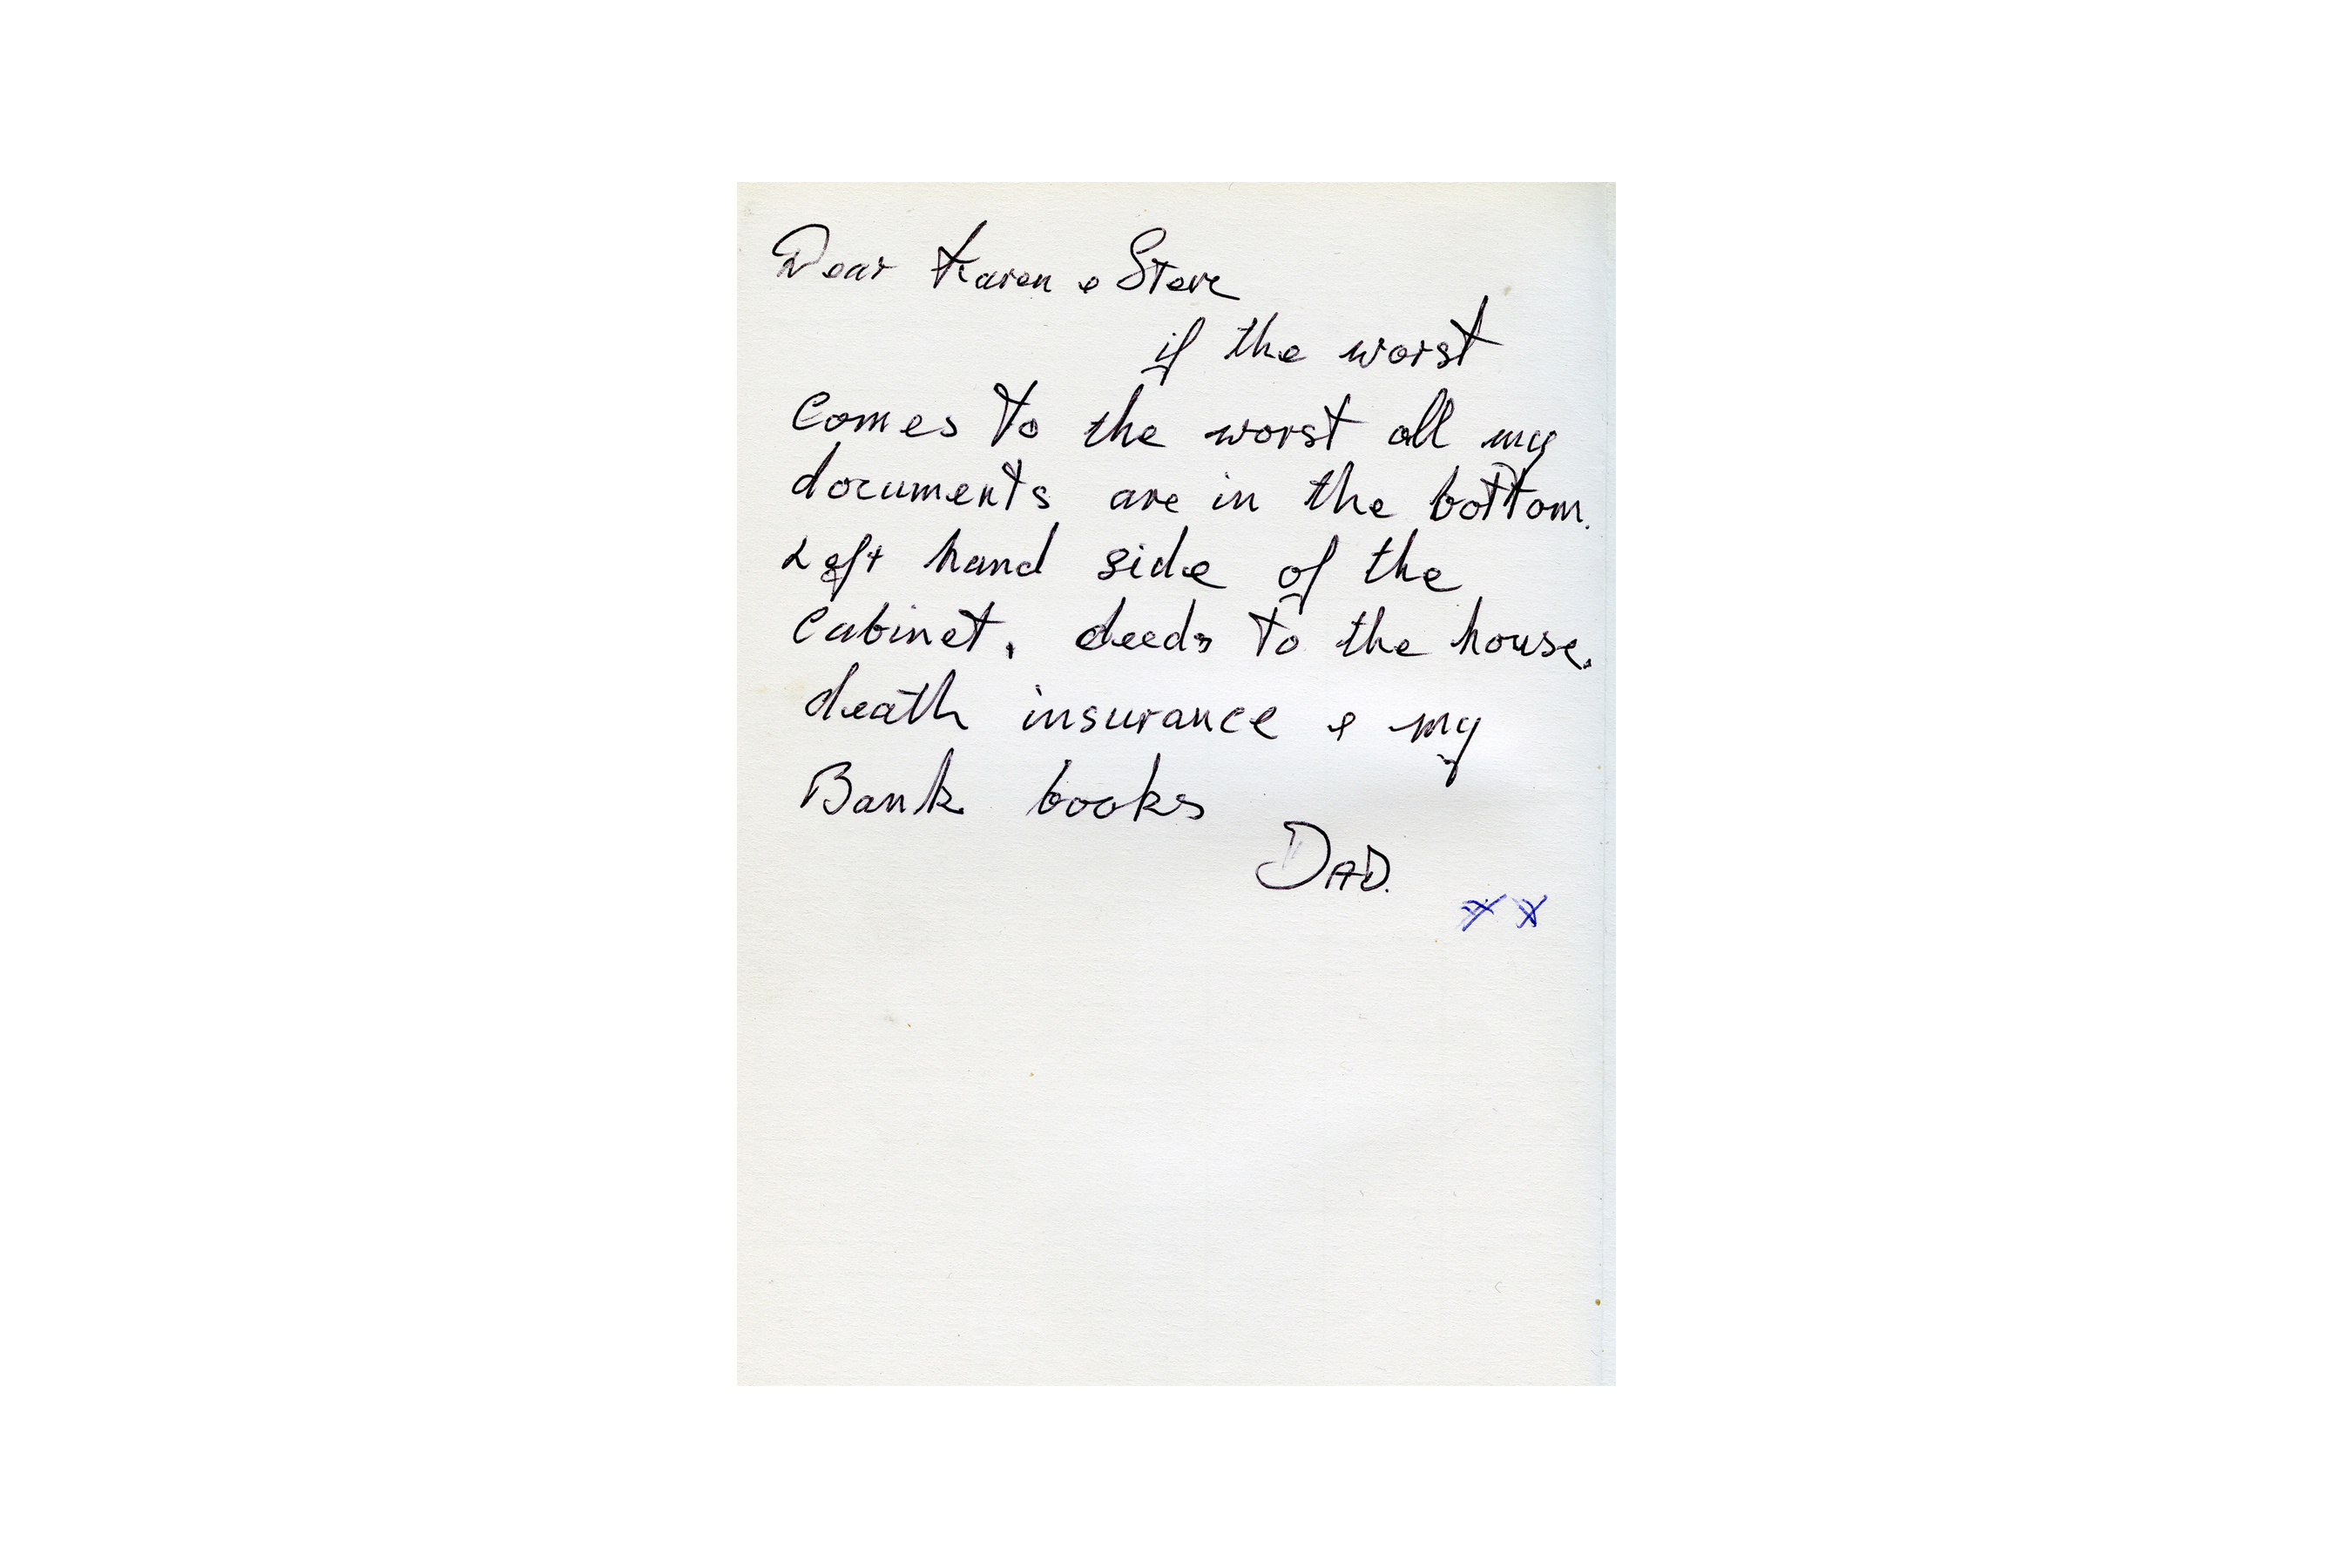 Dear Karen & Steve
if the worst
comes to the worst all my
documents are in the bottom.
Left hand side of the
Cabinet, deeds to the house.
death insurance & my
Bank books
DAD.
x x